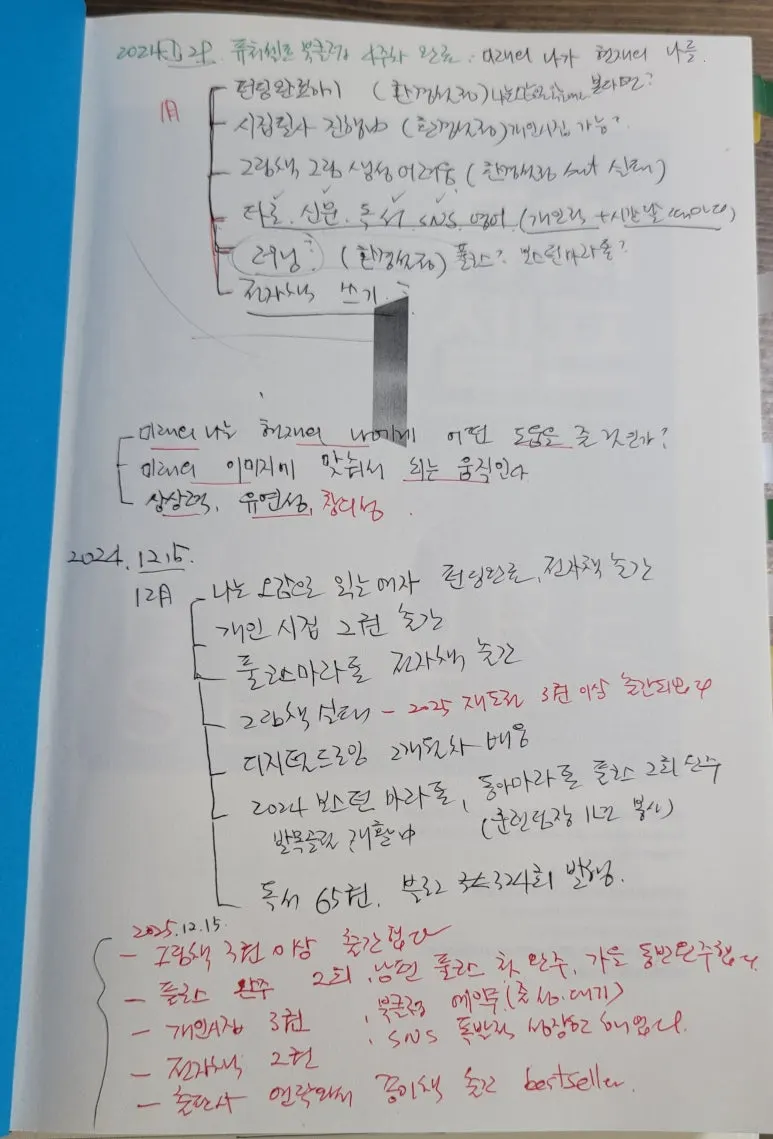 2024.1.29. 퓨처셀프 북클럽 4주차 완료. 미래의 나가 현재의 나를
1月
펀딩완료하기 (환경설정) 본다면?
시집필사 진행中 (환경설정) 개인시집 가능?
그림책 그림 생성 어려움 (환경설정 but 실태)
타로. 신문. 독서. SNS. 영어 (개인적 + 시간날 때마다)
러닝? (환경설정) 풀코스? 보스턴마라톤?
전자책 쓰기?
미래의 나는 현재의 나에게 어떤 도움을 줄 것인가?
미래의 이미지에 맞춰서 뇌는 움직인다
상상력, 유연성, 창의성.
2024.12.15.
12月
나는 오감으로 읽는 여자 펀딩완료, 전자책 출간
개인 시집 2권 출간
풀코스마라톤 전자책 출간
그림책 실패 - 2025 재도전 3권 이상 출간되었다
디지털드로잉 2개월차 배움
2024 보스턴 마라톤, 동아마라톤 풀코스 2회 완주
발목골절 재활中 (훈련팀장 1년 봉사)
독서 65권. 블로그 포스팅 324회 발행.
2025.12.15.
- 그림책 3권 이상 출간했다
- 풀코스 완주 2회, 남편 풀코스 첫 완주, 가을 동반완주했다.
- 개인시집 3권 . 북클럽
- 전자책 2권 . SNS 폭발적 성장하고 있었다.
- 출판사 연락와서 종이책 출간 bestseller.